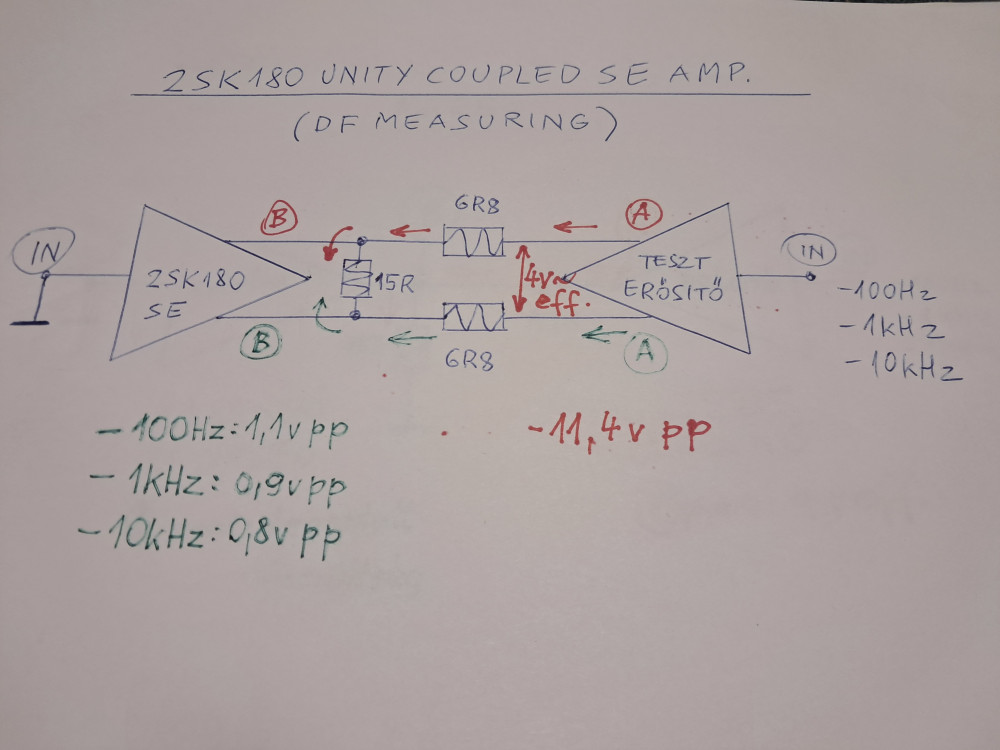 2SK180 UNITY COUPLED SE AMP.
(DF MEASURING)
6R8
B
A
IN
IN
2SK180
SE
15R
4v~
eff.
TESZT
ERŐSITŐ
-100Hz
-1kHz
-10kHz
B
A
6R8
-100Hz:1,1v pp
-11,4v pp
-1kHz: 0,9v pp
-10kHz:0,8v pp